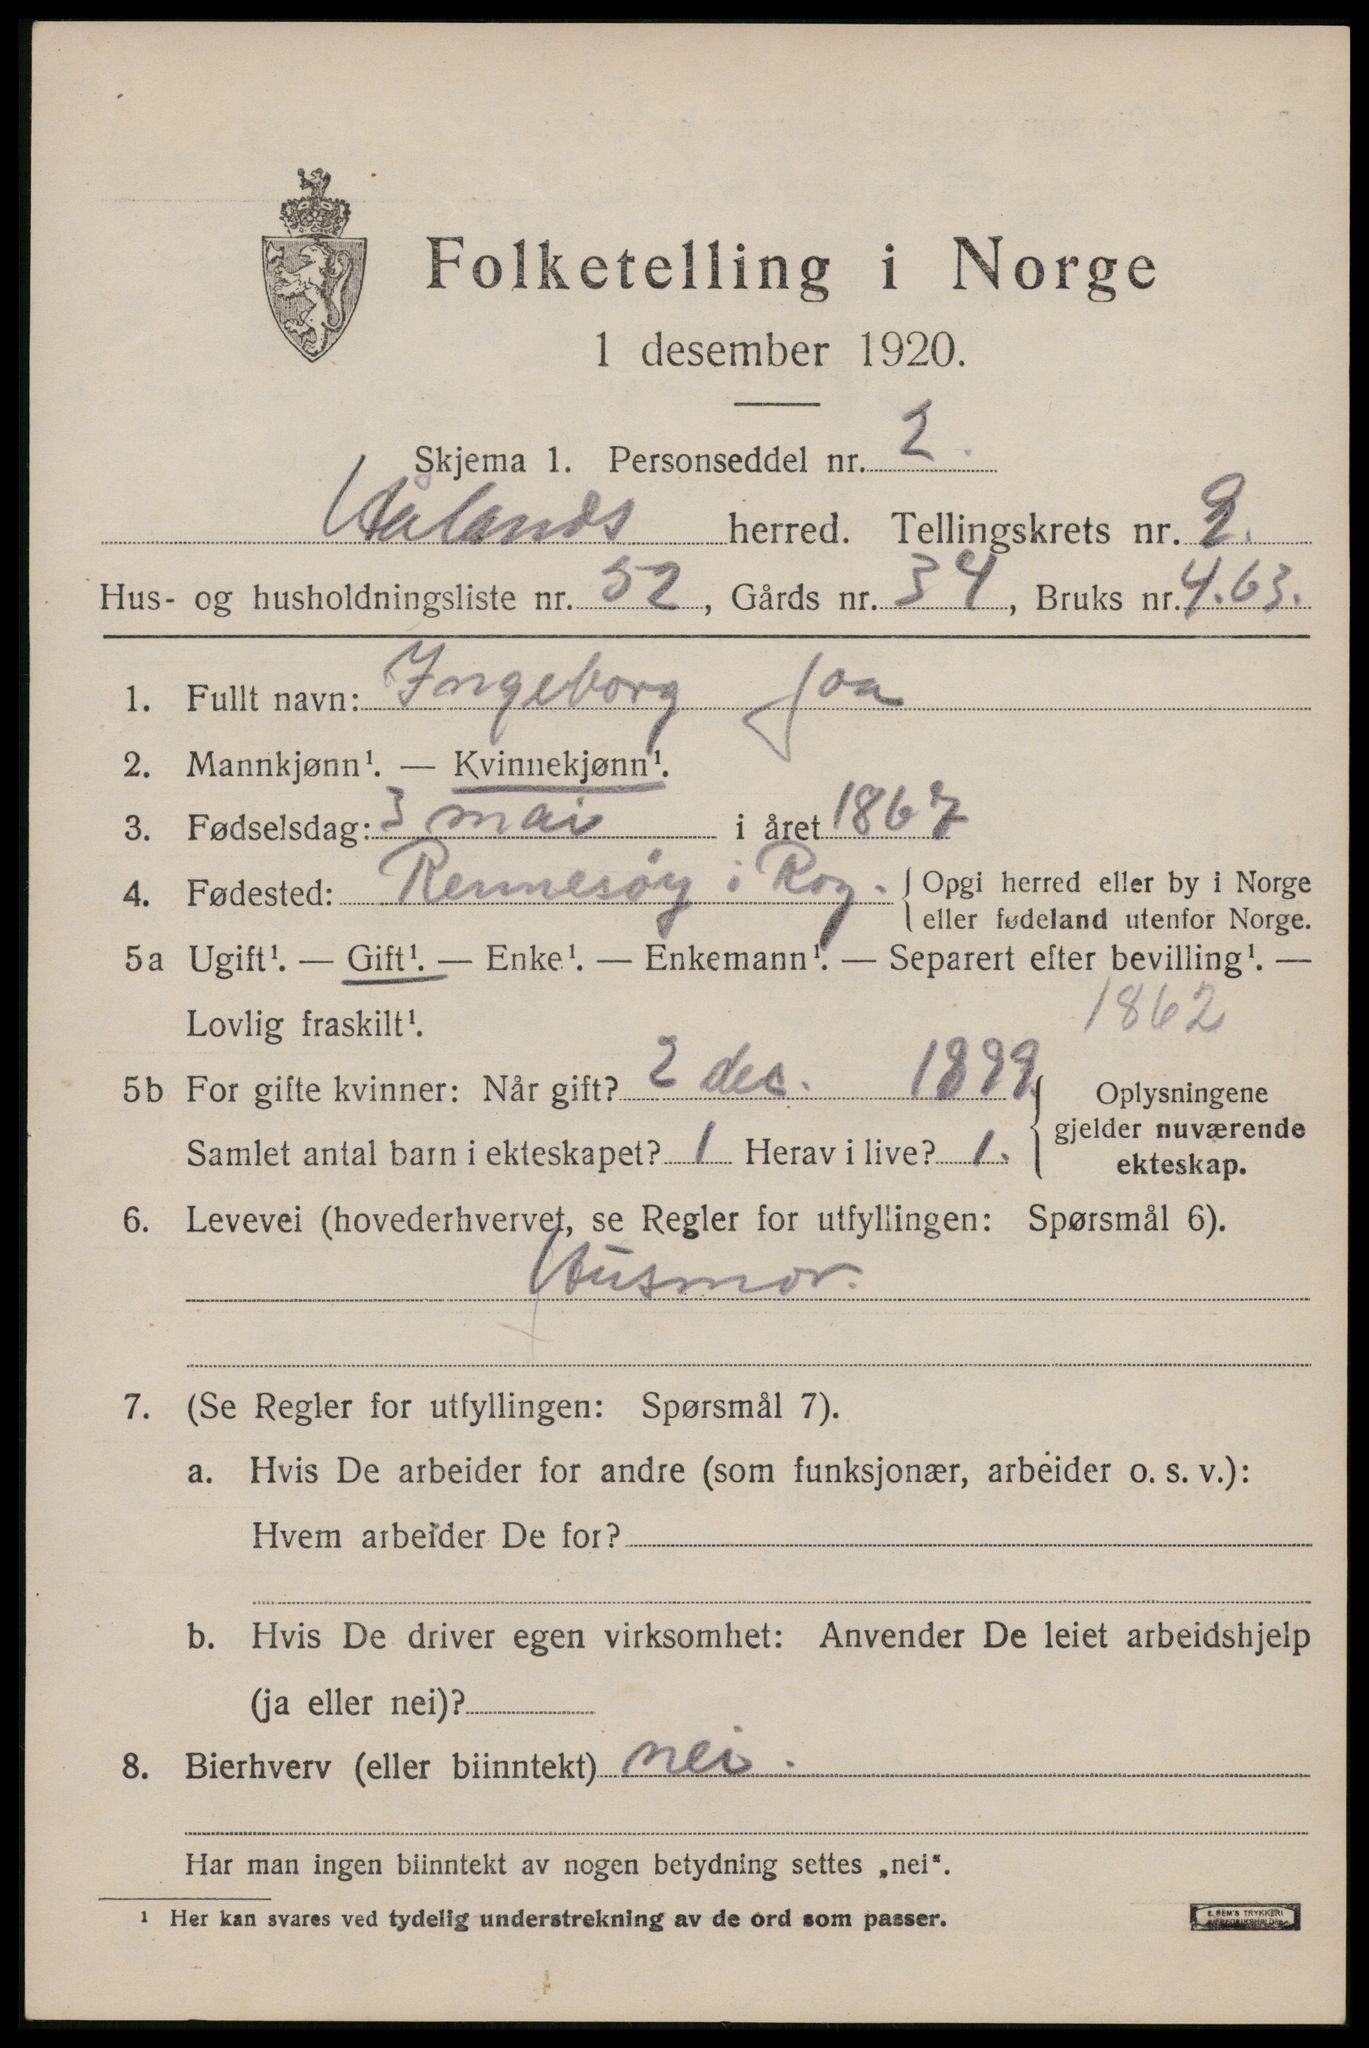 Folketelling i Norge
1 desember 1920.
Skjema 1. Personseddel nr. 2.
Hålands herred. Tellingskrets nr. 2.
Hus- og husholdningsliste nr. 52, Gårds nr. 34, Bruks nr. 4.63.
1. Fullt navn: Ingeborg Joa
2. Mannkjønn¹. — Kvinnekjønn¹.
3. Fødselsdag: 3 mai i året 1867
4. Fødested: Rennesöy i Rog. { Opgi herred eller by i Norge
eller fødeland utenfor Norge.
5a Ugift¹. — Gift¹. — Enke¹. — Enkemann¹. — Separert efter bevilling¹. —
Lovlig fraskilt¹. 1862
5b For gifte kvinner: Når gift? 2 dec. 1899. { Oplysningene
gjelder nuværende
Samlet antal barn i ekteskapet? 1 Herav i live? 1.
ekteskap.
6. Levevei (hovederhvervet, se Regler for utfyllingen: Spørsmål 6).
Husmor.
7. (Se Regler for utfyllingen: Spørsmål 7).
a. Hvis De arbeider for andre (som funksjonær, arbeider o. s. v.):
Hvem arbeider De for?
b. Hvis De driver egen virksomhet: Anvender De leiet arbeidshjelp
(ja eller nei)?
8. Bierhverv (eller biinntekt) nei.
Har man ingen biinntekt av nogen betydning settes „nei“.
¹ Her kan svares ved tydelig understrekning av de ord som passer.
E. SEM'S TRYKKERI
FREDRIKSHALD